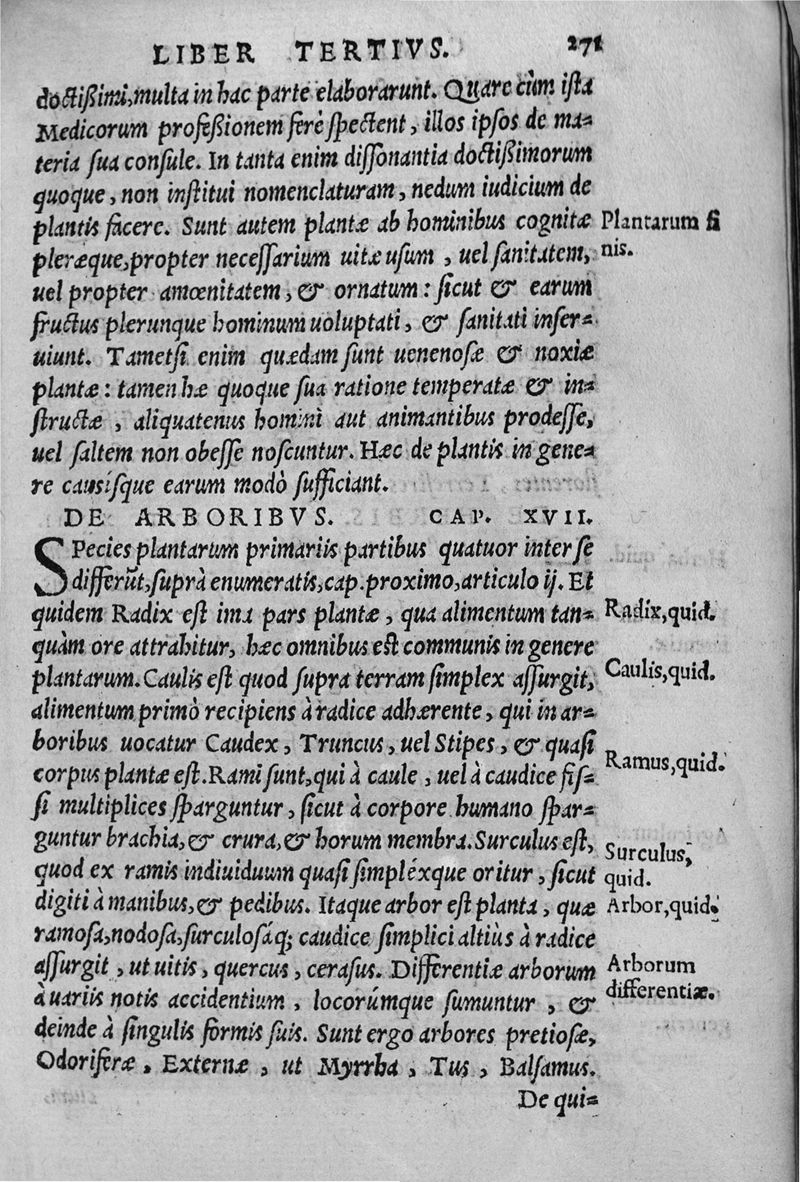 LIBER TERTIVS. 271
doctißimi, multa in hac parte elaborarunt. Quare cùm ista
Medicorum profeßionem ferè spectent, illos ipsos de ma-
teria sua consule. In tanta enim dissonantia doctißimorum
quoque, non institui nomenclaturam, nedum iudicium de
plantis facere. Sunt autem plantæ ab hominibus cognitæ
Plantarum fi
pleræque, propter necessarium uitæ usum, uel sanitatem,
nis.
uel propter amœnitatem, & ornatum: sicut & earum
fructus plerunque hominum uoluptati, & sanitati inser-
uiunt. Tametsi enim quædam sunt uenenosæ & noxiæ
plantæ: tamen hæ quoque sua ratione temperatæ & in-
structæ, aliquatenus homini aut animantibus prodesse,
uel saltem non obesse noscuntur. Hæc de plantis in gene-
re causisque earum modò sufficiant.
DE ARBORIBVS. CAP. XVII.
SPecies plantarum primariis partibus quatuor inter se
differūt, suprà enumeratis, cap. proximo, articulo ij. Et
quidem Radix est ima pars plantæ, qua alimentum tan-
Radix, quid.
quàm ore attrahitur, hæc omnibus est communis in genere
plantarum. Caulis est quod supra terram simplex assurgit,
Caulis, quid.
alimentum primò recipiens à radice adhærente, qui in ar-
boribus uocatur Caudex, Truncus, uel Stipes, & quasi
corpus plantæ est. Rami sunt, qui à caule, uel à caudice fis-
Ramus, quid.
si multiplices sparguntur, sicut à corpore humano spar-
guntur brachia, & crura, & horum membra. Surculus est,
Surculus,
quod ex ramis indiuiduum quasi simpléxque oritur, sicut
quid.
digiti à manibus, & pedibus. Itaque arbor est planta, quæ
Arbor, quid.
ramosa, nodosa, surculosáq; caudice simplici altiùs à radice
assurgit, ut uitis, quercus, cerasus. Differentiæ arborum
Arborum
à uariis notis accidentium, locorúmque sumuntur, &
differentiæ.
deinde à singulis formis suis. Sunt ergo arbores pretiosæ,
Odoriferæ, Externæ, ut Myrrha, Tus, Balsamus.
De qui-